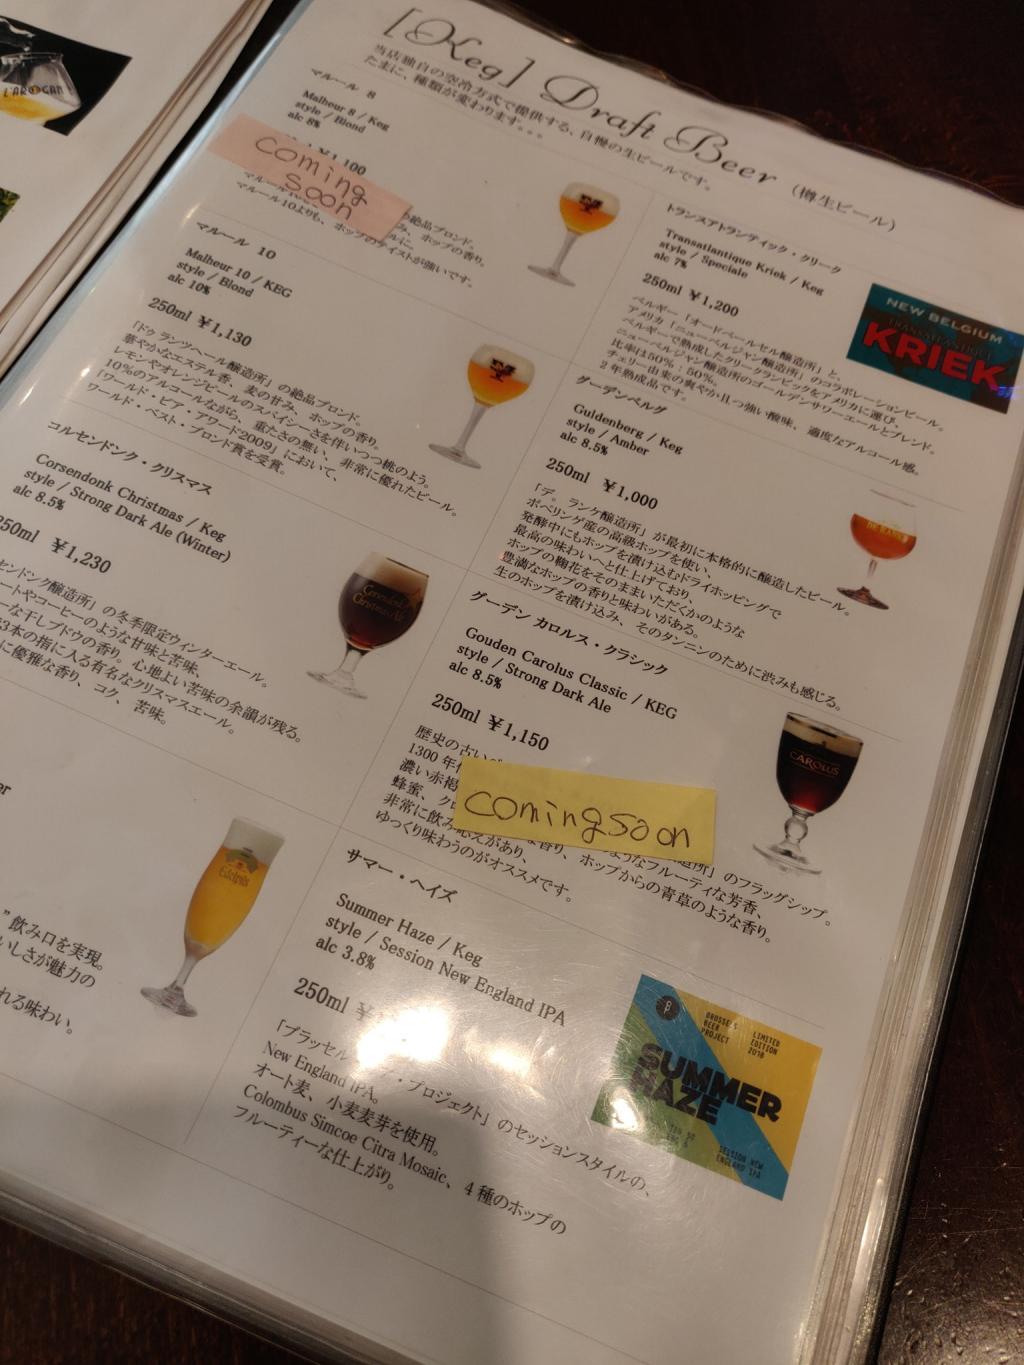 L'ARO GAN
[Keg] Draft Beer （樽生ビール）
当店独自の空冷方式で提供する、自慢の生ビールです。
たまに、種類が変わります。。。
マルール 8
Malheur 8 / Keg
style / Blond
alc 8%
¥1,100
coming
soon
の絶品ブロンド。
み、ホップの香り。
マルール10よりも、ホップのテイストが強いです。
マルール 10
Malheur 10 / KEG
style / Blond
alc 10%
250ml ¥1,130
「ドゥ ランツヘール醸造所」の絶品ブロンド。
華やかなエステル香、麦の甘み、ホップの香り。
レモンやオレンジピールのスパイシーさを伴いつつ桃のよう。
10%のアルコールながら、重たさの無い、非常に優れたビール。
「ワールド・ビア・アワード2009」において、
ワールド・ベスト・ブロンド賞を受賞。
コルセンドンク・クリスマス
Corsendonk Christmas / Keg
style / Strong Dark Ale (Winter)
alc 8.5%
250ml ¥1,230
センドンク醸造所」の冬季限定ウィンターエール。
ートやコーヒーのような甘味と苦味、
ーな干しブドウの香り。心地よい苦味の余韻が残る。
3本の指に入る有名なクリスマスエール。
に優雅な香り、コク、苦味。
er
Edelpils
”飲み口を実現。
いしさが魅力の
れる味わい。
トランスアトランティック・クリーク
Transatlantique Kriek / Keg
style / Speciale
alc 7%
250ml ¥1,200
ベルギー「オードベールセル醸造所」と、
アメリカ「ニューベルジャン醸造所」のコラボレーションビール。
ベルギーで熟成したクリークランビックをアメリカに運び、
ニューベルジャン醸造所のゴールデンサワーエールとブレンド。
比率は50%：50%。
チェリー由来の爽やか且つ強い酸味、適度なアルコール感。
2年熟成品です。
NEW BELGIUM
TRANSATLANTIQUE
KRIEK
グーデンベルグ
Guldenberg / Keg
style / Amber
alc 8.5%
250ml ¥1,000
「デ。ランケ醸造所」が最初に本格的に醸造したビール。
ポペリンゲ産の高級ホップを使い、
発酵中にもホップを漬け込むドライホッピングで
最高の味わいへと仕上げており、
ホップの鞠花をそのままいただくかのような
豊満なホップの香りと味わいがある。
生のホップを漬け込み、そのタンニンのために渋みも感じる。
グーデン カロルス・クラシック
Gouden Carolus Classic / KEG
style / Strong Dark Ale
alc 8.5%
250ml ¥1,150
歴史の古い
醸造所」のフラッグシップ。
1300年
濃い赤褐
のようなフルーティな芳香、
蜂蜜、ク
な香り、ホップからの青草のような香り。
非常に飲み応えがあり、
ゆっくり味わうのがオススメです。
coming soon
CAROLUS
サマー・ヘイズ
Summer Haze / Keg
style / Session New England IPA
alc 3.8%
250ml ¥
「ブラッセル
ア・プロジェクト」のセッションスタイルの、
New England IPA。
オート麦、小麦麦芽を使用。
Colombus Simcoe Citra Mosaic、4種のホップの
フルーティーな仕上がり。
BRUSSELS
BEER
PROJECT
LIMITED
EDITION
2018
SUMMER
HAZE
SESSION NEW
ENGLAND IPA